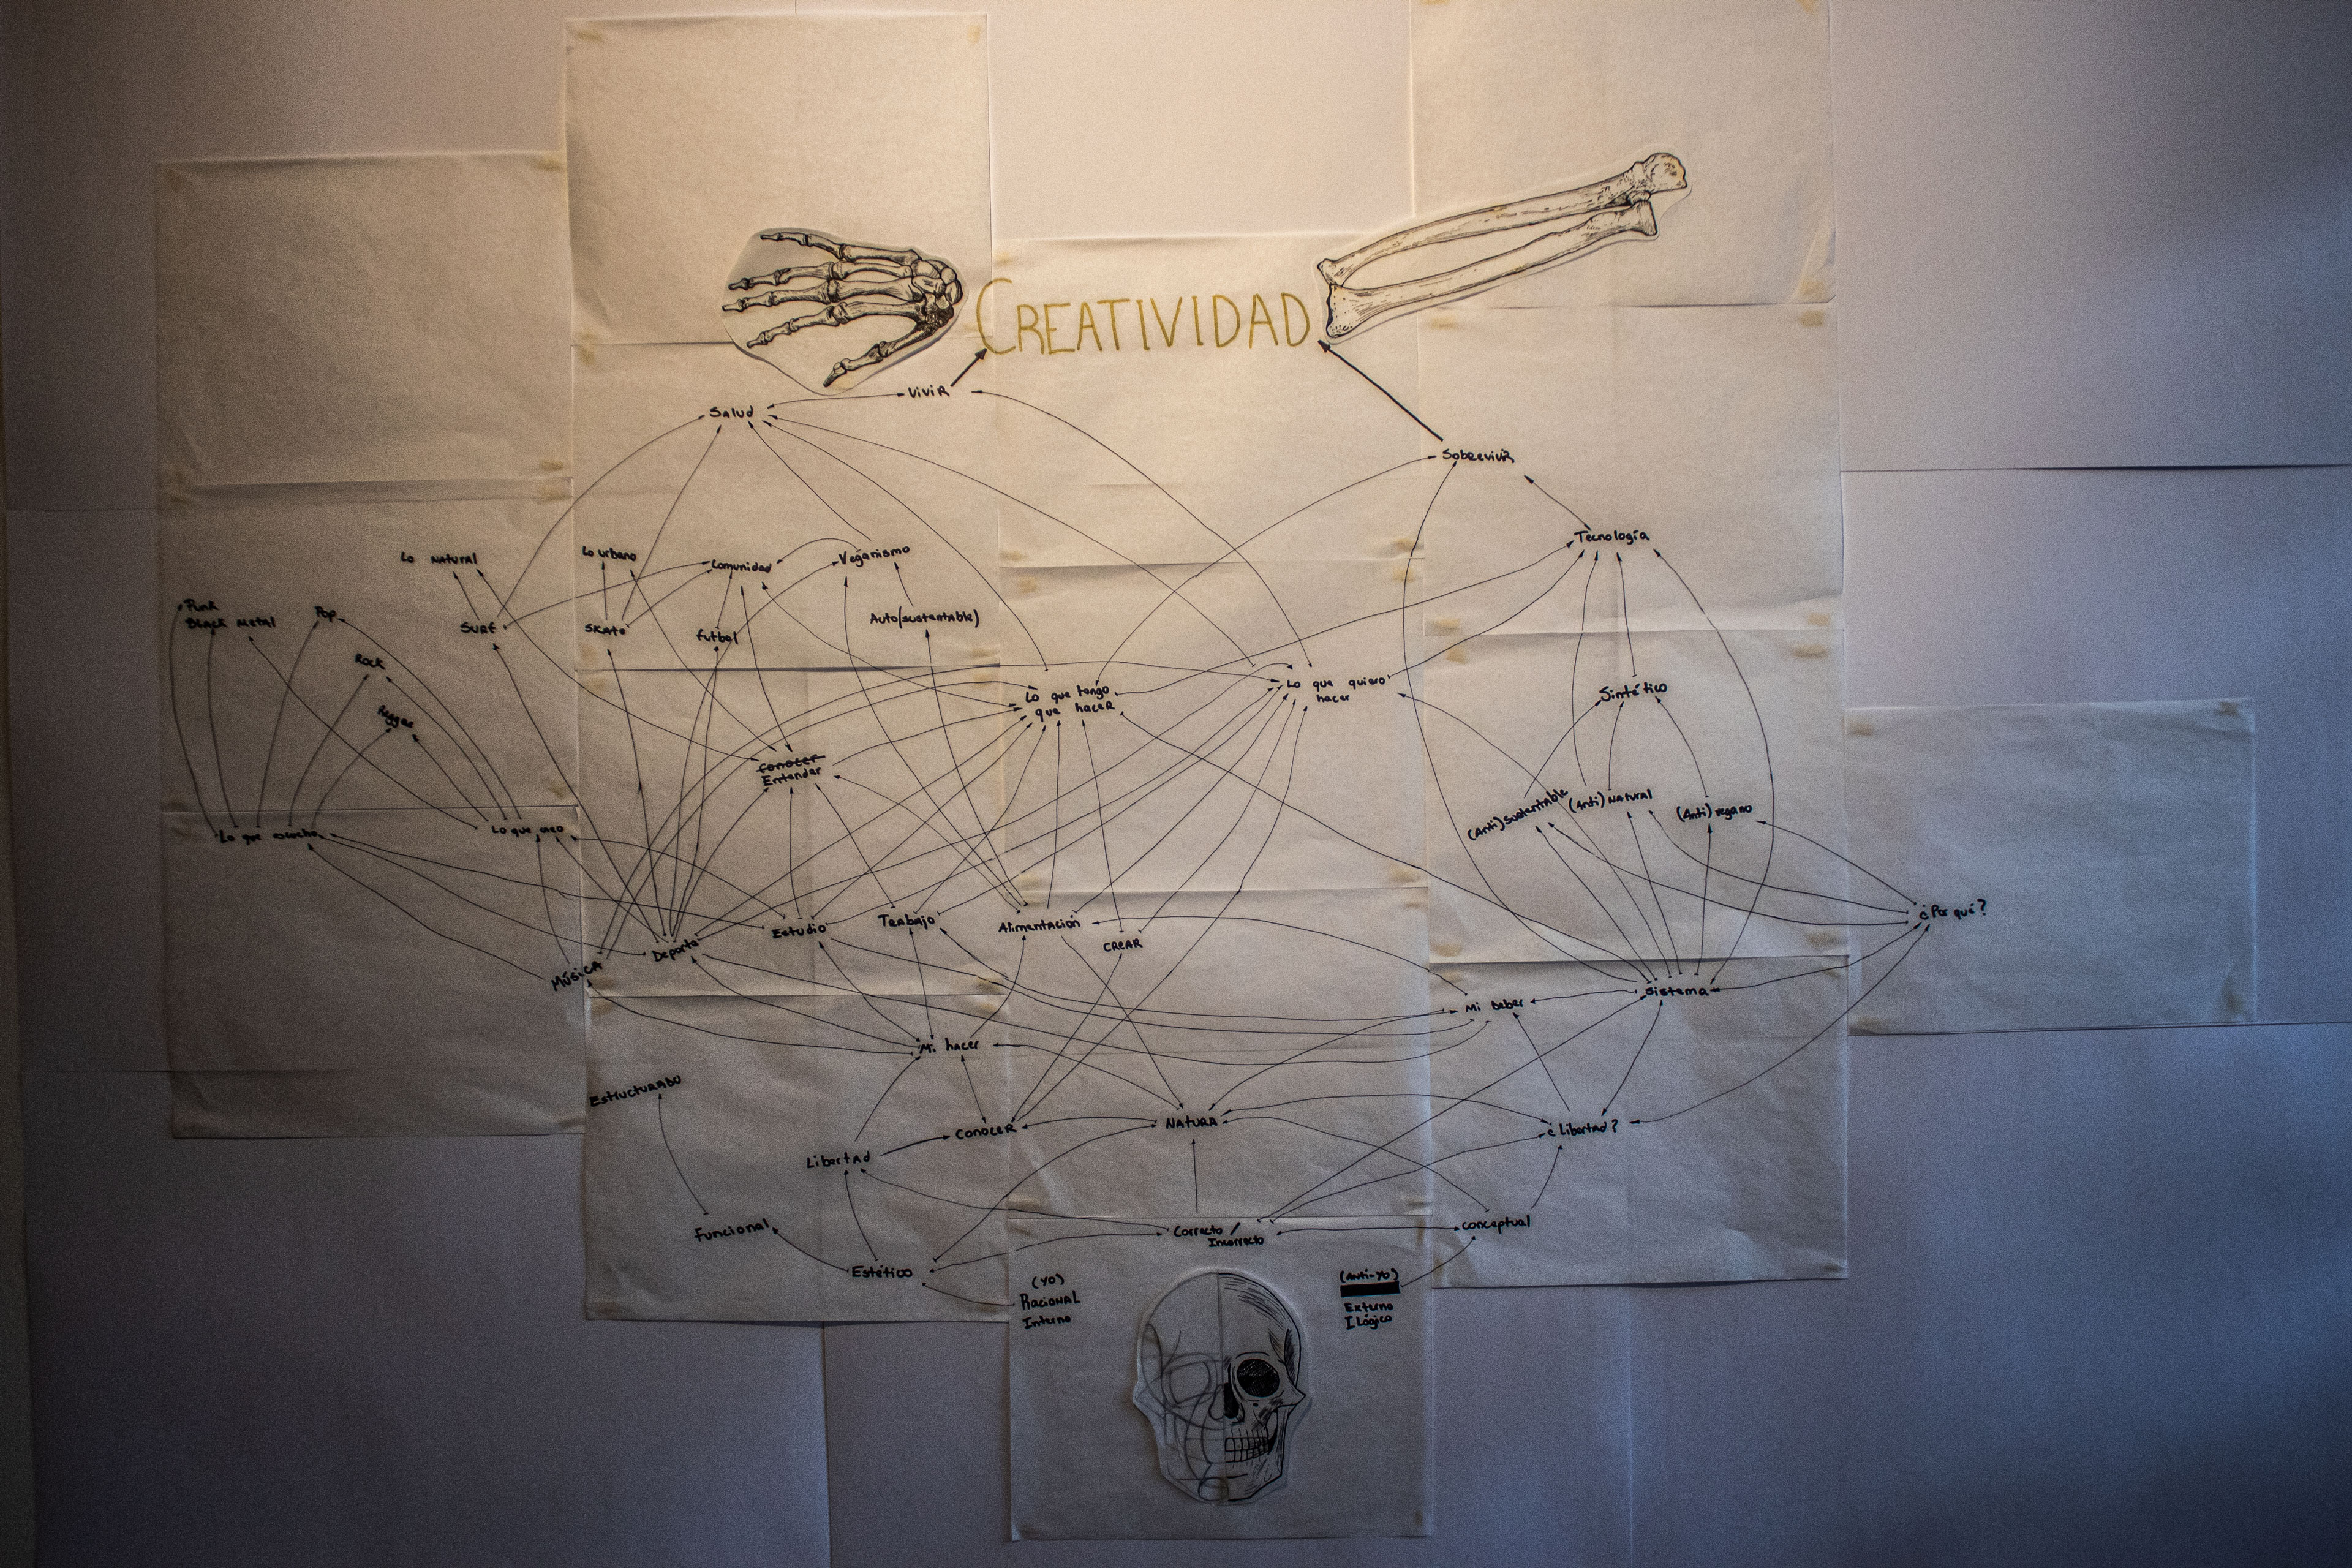 CREATIVIDAD
ViviR
Salud
SobreviviR
Tecnología
Lo NATURAL
Lo urbano
Comunidad
Veganismo
Punk
Black Metal
Pop
SURF
SKate
Futbol
Auto(sustentable)
Rock
Reggae
Lo que tengo
que haceR
Lo que quiero
hacer
Sintético
conocer
Entender
(Anti)sustentable
(Anti) NATURAL
(Anti) vegano
Lo que escucho
Lo que uso
MúsicA
Deporte
Estudio
Trabajo
Alimentación
CREAR
¿Por qué?
Mi Deber
Sistema
Mi hacer
EstructurADO
LibertAd
ConoceR
NATURA
¿Libertad?
Funcional
Estético
Correcto /
Incorrecto
conceptual
(YO)
RacioNAL
Interno
(Anti-YO)
Externo
ILógico